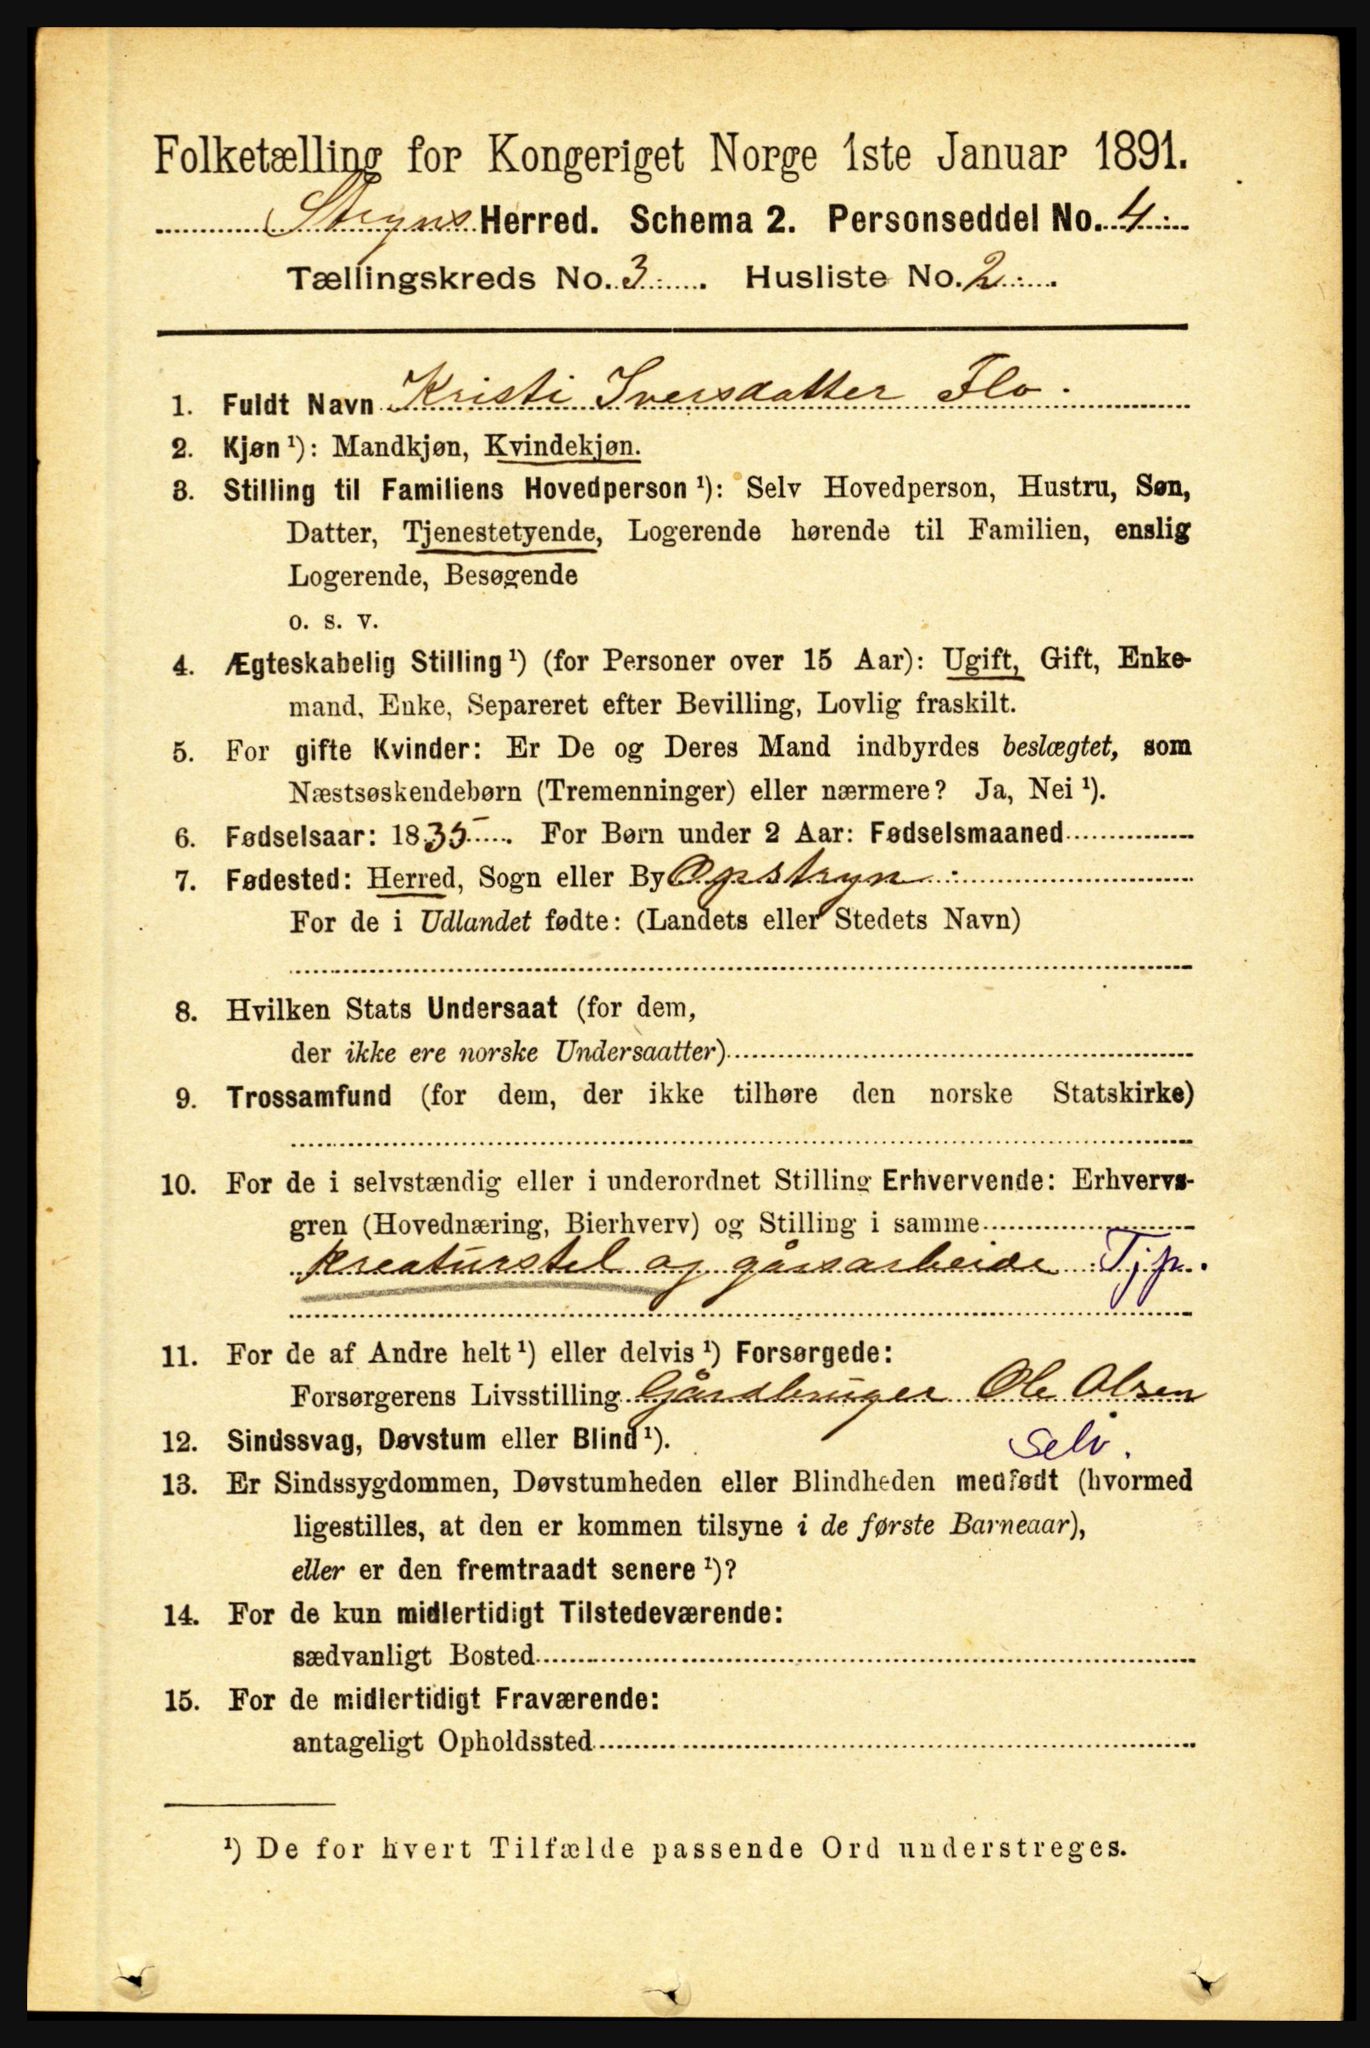 Folketælling for Kongeriget Norge 1ste Januar 1891.
Stryns Herred. Schema 2. Personseddel No. 4.
Tællingskreds No. 3. Husliste No. 2.
1. Fuldt Navn Kristi Iversdatter Flo.
2. Kjøn¹): Mandkjøn, Kvindekjøn.
3. Stilling til Familiens Hovedperson¹): Selv Hovedperson, Hustru, Søn,
Datter, Tjenestetyende, Logerende hørende til Familien, enslig
Logerende, Besøgende
o. s. v.
4. Ægteskabelig Stilling¹) (for Personer over 15 Aar): Ugift, Gift, Enke-
mand, Enke, Separeret efter Bevilling, Lovlig fraskilt.
5. For gifte Kvinder: Er De og Deres Mand indbyrdes beslægtet, som
Næstsøskendebørn (Tremenninger) eller nærmere? Ja, Nei¹).
6. Fødselsaar: 1835. For Børn under 2 Aar: Fødselsmaaned
7. Fødested: Herred, Sogn eller By Opstryn.
For de i Udlandet fødte: (Landets eller Stedets Navn)
8. Hvilken Stats Undersaat (for dem,
der ikke ere norske Undersaatter)
9. Trossamfund (for dem, der ikke tilhøre den norske Statskirke)
10. For de i selvstændig eller i underordnet Stilling Erhvervende: Erhvervs-
gren (Hovednæring, Bierhverv) og Stilling i samme
kreaturstel og gårsarbeide Tjp.
11. For de af Andre helt¹) eller delvis¹) Forsørgede:
Forsørgerens Livsstilling Gårdbruger Ole Olsen
12. Sindssvag, Døvstum eller Blind¹). Selv.
13. Er Sindssygdommen, Døvstumheden eller Blindheden medfødt (hvormed
ligestilles, at den er kommen tilsyne i de første Barneaar),
eller er den fremtraadt senere¹)?
14. For de kun midlertidigt Tilstedeværende:
sædvanligt Bosted
15. For de midlertidigt Fraværende:
antageligt Opholdssted
¹) De for hvert Tilfælde passende Ord understreges.